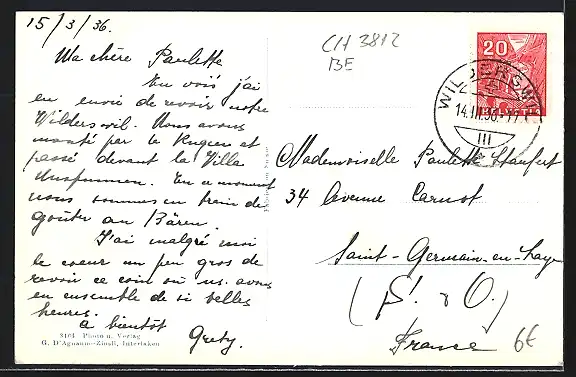 15/3/36.
Ma chère Paulette
Tu vois j'ai
eu envie de revoir notre
Wilderswil. Nous avons
monté par le Rugen et
passé devant la Villa
Unspunnen. En ce moment
nous sommes en train de
goûter au Bären.
J'ai malgré moi
le coeur un peu gros de
revoir ce coin où ns. avons
eu ensemble de si belles
heures.
à bientôt
Grety.
3101 Photo u. Verlag
G. D'Aguanno-Zinoli, Interlaken
CH 3812
BE
20
HELVETIA
WILDERSWIL
14.III.36.-17
III
Mademoiselle Paulette Stauffert
34 Avenue Carnot
Saint-Germain-en-Laye
(S. & O.)
France
6€